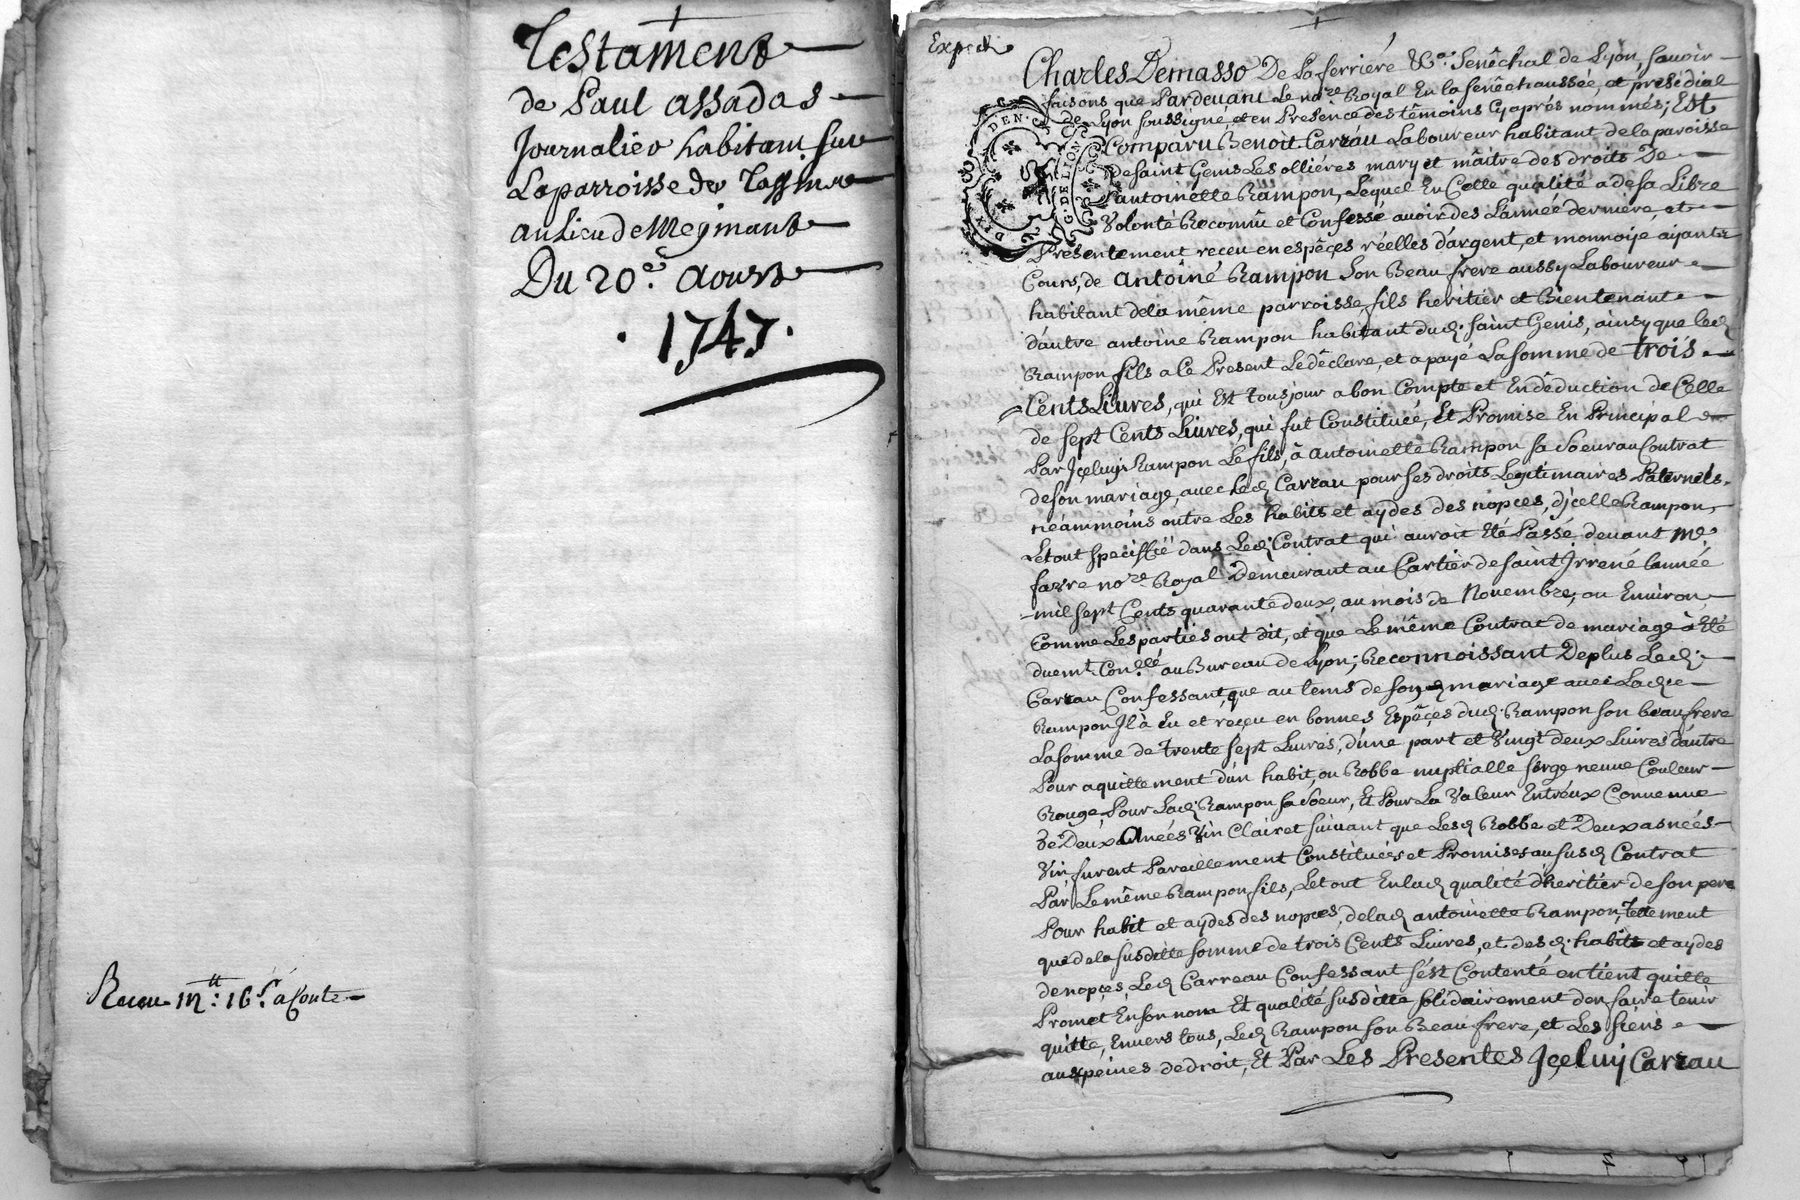 Testament
de Paul assadas
Journalier habitant sur
La parroisse de Tassin
au Lieu de Meginant
Du 20e. Aoust
. 1747.
Receu 12tt: 16s. a Conte
Exped
Charles Demasso De La ferriere &a. Senêchal de Lyon, savoir
faisons que Pardevant Le nore Royal En la senêchaussée, et presidial
de Lyon soussigné, et en Presence des têmoins Cyaprés nommés; Est
Comparu Benoit Carrau Laboureur habitant de la paroisse
de saint Genis Les ollieres mary et mâitre des droits De
antoinette Rampon, Lequel En Celle qualité a de sa Libre
Volonté Reconnu et Confessé avoir des L'année derniere, et
Presentement receu en espêçes réelles d'argent, et monnoije aijant
Cours, de Antoiné Rampon son Beau frere aussy Laboureur
habitant de la même parroisse, fils heritier et Bientenant
d'autre antoine Rampon habitant dud. saint Genis, ainsy que led
Rampon fils a Ce Present Le dêclare, et a payé La somme de trois
Cents Livres, qui Est Tousjour a bon Compte et En dêduction de Celle
de sept Cents Livres, qui fut Constituée, et Promise En Principal
Par Jçeluy Rampon Le fils, à antoinette Rampon sa soeur au Contrat
de son mariage, avec Led Carrau pour ses droits Legitimaires Paternels,
néammoins outre Les habits et aydes des nopces, d'jcelle Rampon,
Le tout speciffié dans Led. Contrat qui auroit Eté Passé devant me.
favre nore Royal Demeurant au Cartier de saint Jrrené l'année
mil sept Cents quarante deux, au mois de Novembre, ou Environ,
Comme Les parties ont dit, et que Le même Contrat de mariage à Eté
duemt Conllé au Bureau de Lyon; Reconnoissant De plus Led.
Carrau Confessant, que au tems de sond mariage avec Lade
Rampon Jl à Eu et reçeu en bonnes Espêçes dud. Rampon son beau frere
La somme de trente sept Livres, d'une part et Vingt deux Livres d'autre
Pour aquittement d'un habit, ou Robbe nuptialle serge neuve Couleur
Rouge, Pour Lad. Rampon sa soeur, Et Pour La Valeur Entréux Convenue
de Deux Anées Vin Clairet suivant que Lesd Robbe et Deux asnées
Vin, furent Pareillement Constituées et Promises au susd Contrat
Par Le même Rampon fils, Le tout En lad qualité d'heritier de son pere
Pour habit et aydes des nopces, de lad antoinette Rampon, Tellement
que de la susditte somme de trois Cents Livres, et desd. habits et aydes
de nopçes, Led Carreau Confessant s'est Contenté en tient quitte
Promet En son nom Et qualité susditte, solidairement d'en faire tenir
quitte, Envers tous, Led Rampon son Beau frere, et Les siens
aux peines de droit, Et Par Les Presentes Jçeluij Carrau